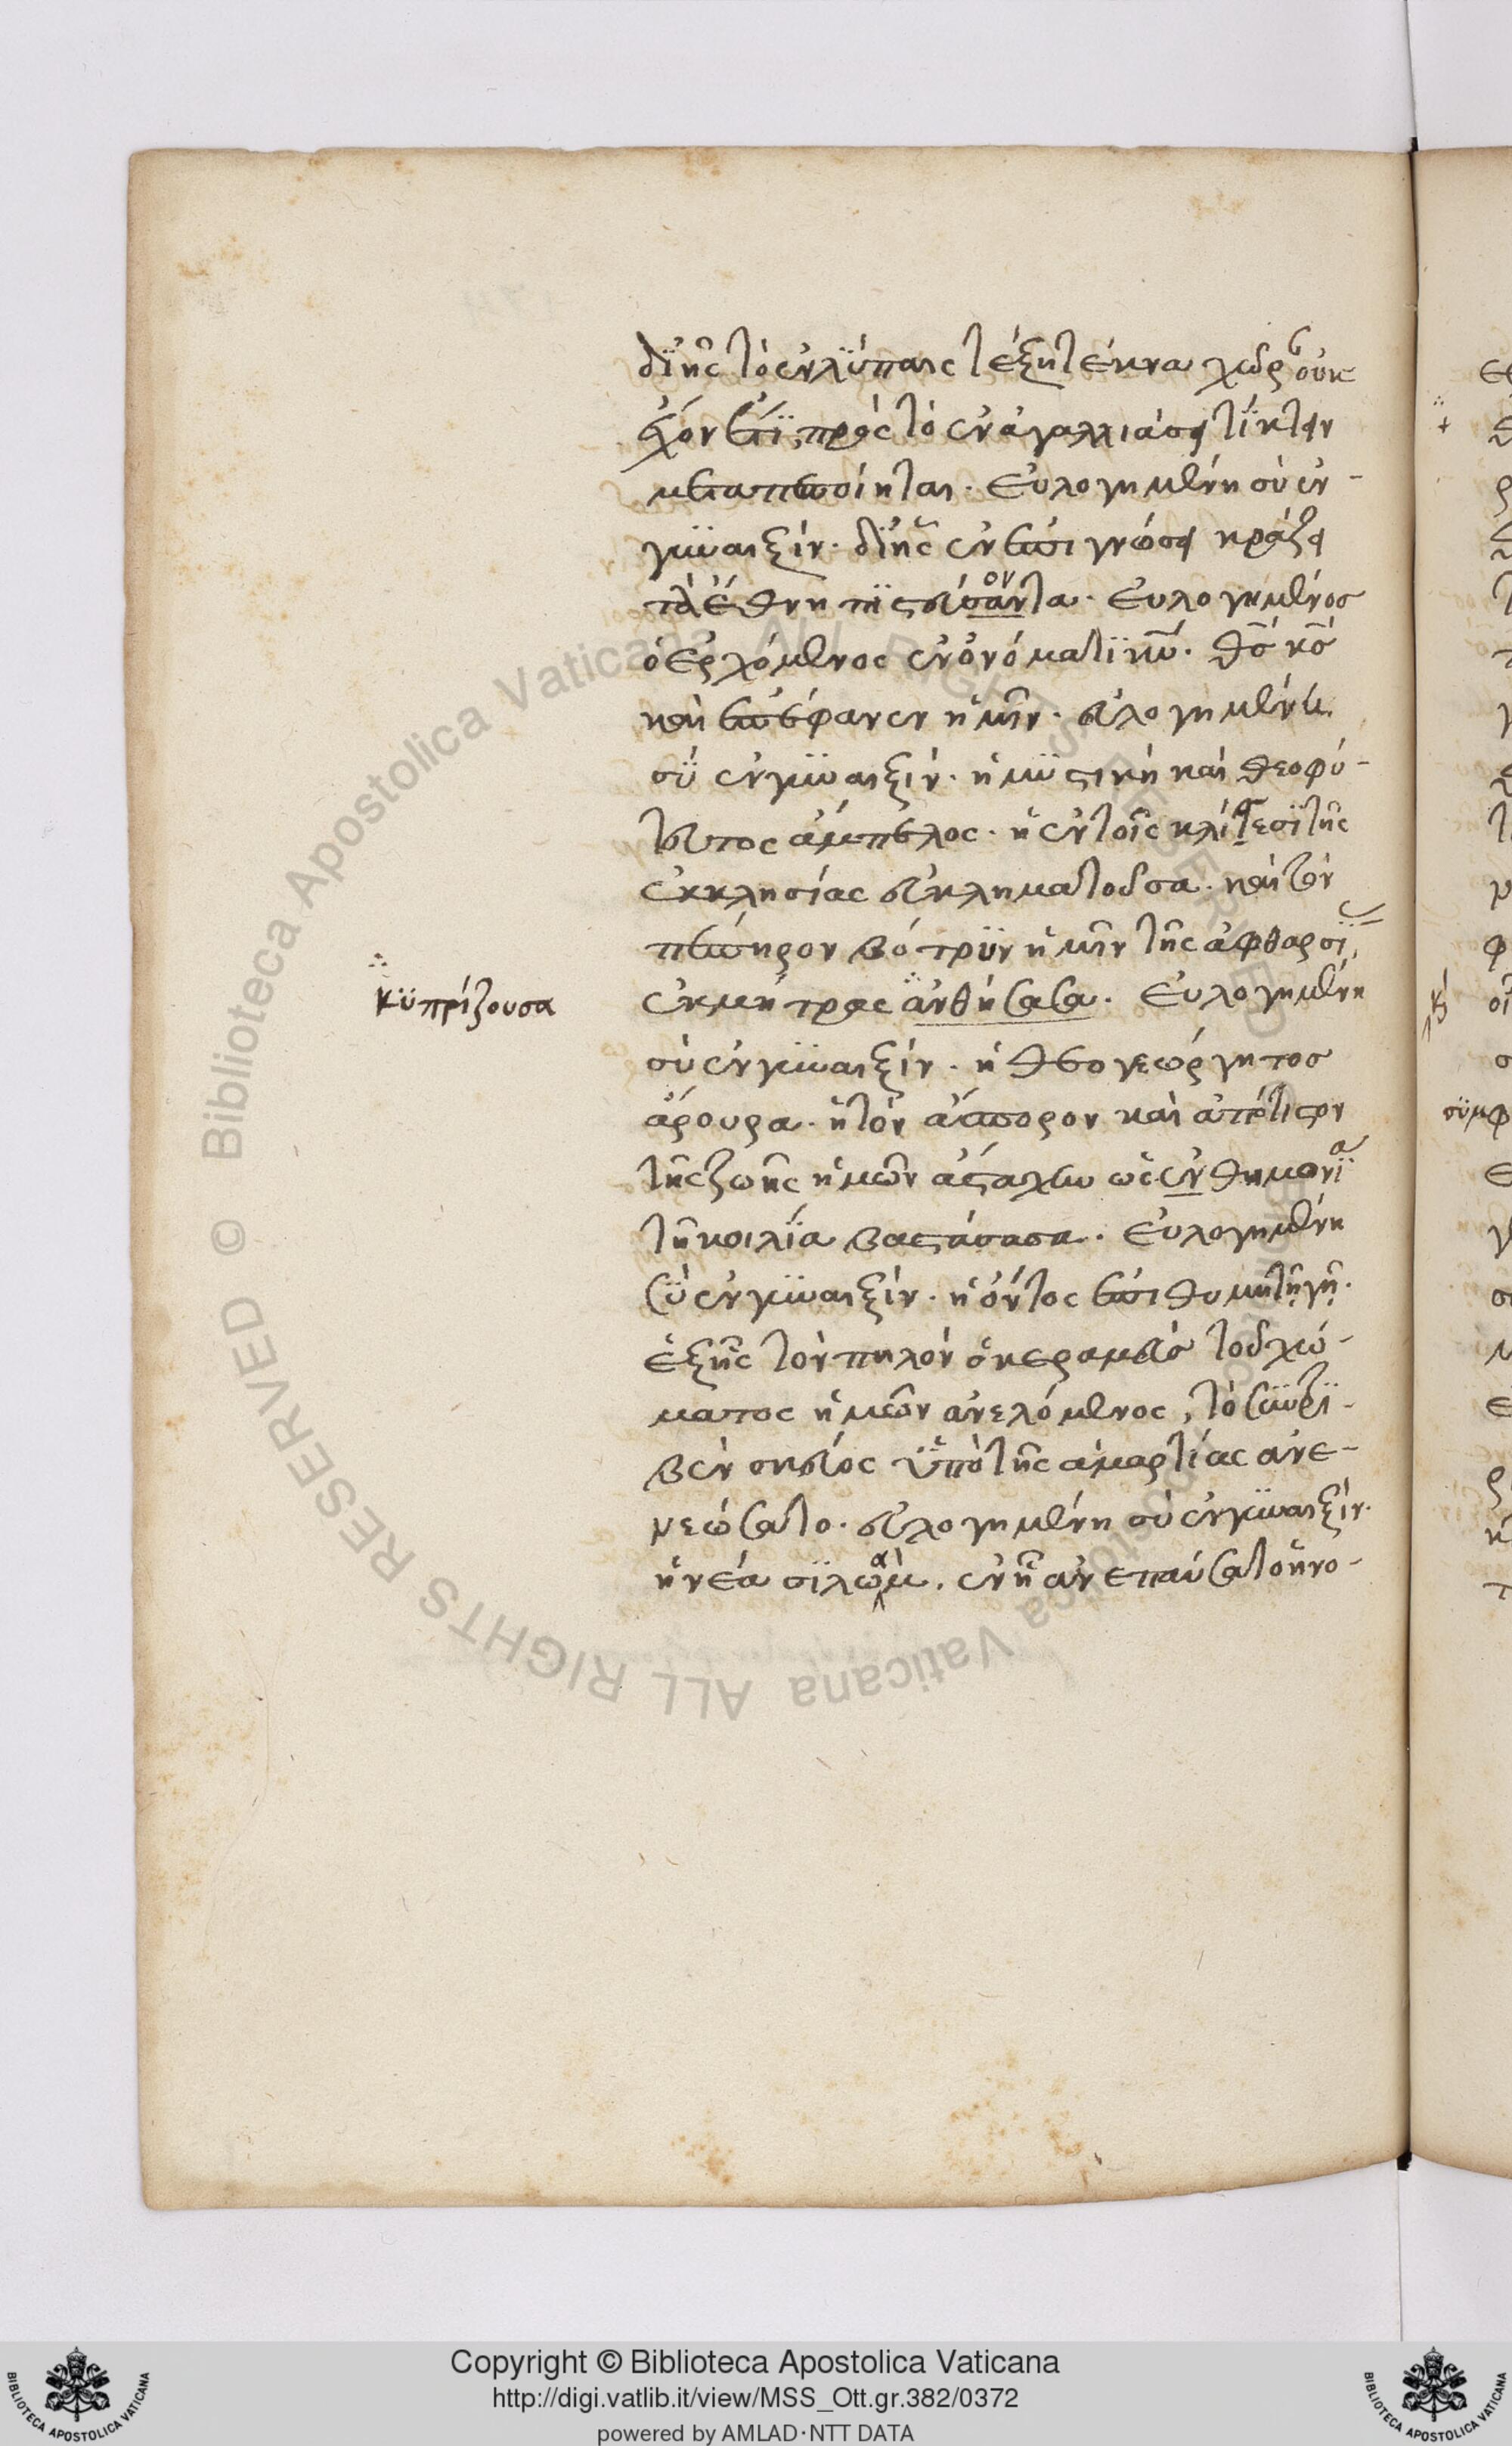 δι' ἧς τὸ ἐν λύπαις τέξη τέκνα χωρς οὐκ
ἔχον ἔτι πρὸς τὸ ἐν ἀγαλλιάσει τίκτειν
μεταπεποίηται. Εὐλογημένη σὺ ἐν
γυναιξίν. δι' ἧς ἐν ἐπιγνώσει κράζει
τὰ ἔθνη πιστεύσαντα. Εὐλογημένος
ὁ ἐρχόμενος ἐν ὀνόματι κυ. θς κς
καὶ ἐπέφανεν ἡμῖν. εὐλογημένη
σὺ ἐν γυναιξίν. ἡ μυστικὴ καὶ θεοφύ-
τευτος ἄμπελος. ἡ ἐν τοῖς κλίτεσι τῆς
ἐκκλησίας εὐκληματοῦσα. καὶ τὸν
πέπηρον βότρυν ἡμῖν τῆς ἀφθαρσί
ἐκ μήτρας ἀνθήσασα. Εὐλογημένη
κυπρίζουσα
σὺ ἐν γυναιξίν. ἡ θεογεώργητος
ἄρουρα. ἡ τὸν ἄσπορον καὶ ἀπότιστον
τῆς ζωῆς ἡμῶν ἄσταχυν ὡς ἐν θημωνιᾶ
τῆ κοιλία βαστάσασα. Εὐλογημένη
σὺ ἐν γυναιξίν. ἡ ὄντος ἐπιθυμητὴ γῆ.
ἐξ ἧς τὸν πηλὸν ὁ κεραμεὺς τοῦ χώ-
ματος ἡμῶν ἀνελόμενος, τὸ συντρι-
βὲν σκεῦος ὑπὸ τῆς ἁμαρτίας ἀνε-
νεώσατο. εὐλογημένη σὺ ἐν γυναιξίν.
ἡ νέα σιλωὰμ. ἐν ἧ ἀνεπαύσατο ἡνο-
Copyright © Biblioteca Apostolica Vaticana
http://digi.vatlib.it/view/MSS_Ott.gr.382/0372
powered by AMLAD·NTT DATA